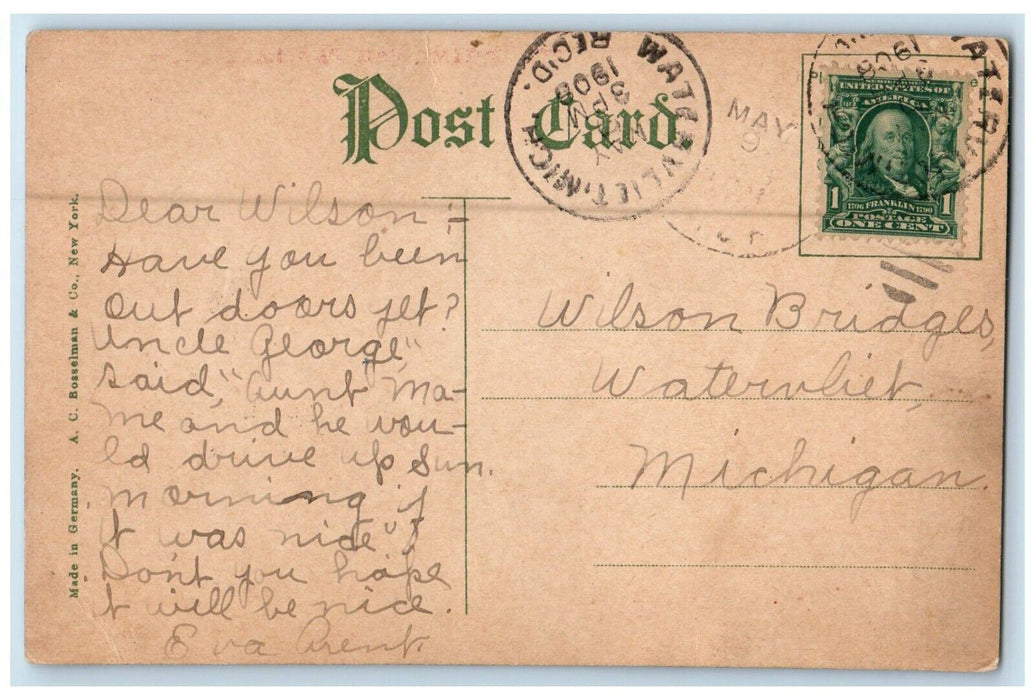 Post Card
WATERVLIET, MICH.
MAY
3 PM
1908
REC'D.
MAY
9
1908
SERIES 1902
UNITED STATES OF
AMERICA
1 FRANKLIN 1
POSTAGE
ONE CENT
Made in Germany. A. C. Bosselman & Co., New York.
Dear Wilson:-
Have you been
out doors yet?
Uncle George,
said, "Aunt Ma-
me and he wou-
ld drive up Sun.
morning if
it was nice"?
Don't you hope
it will be nice.
Eva Arent.
Wilson Bridges,
Watervliet,
Michigan.